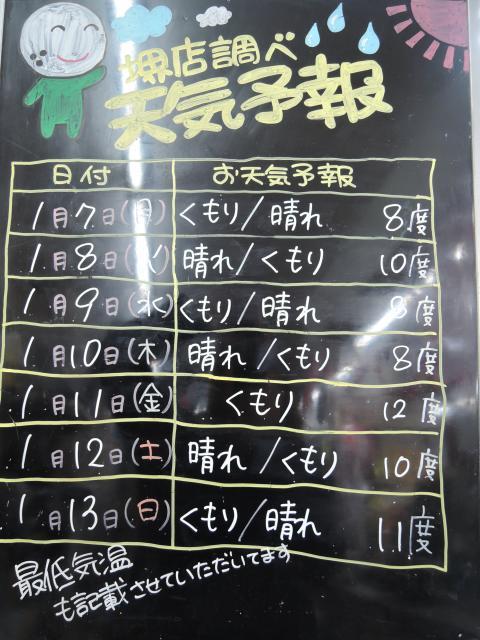 堺店調べ
天気予報
日付 お天気予報
1月7日(月) くもり/晴れ 8度
1月8日(火) 晴れ/くもり 10度
1月9日(水) くもり/晴れ 8度
1月10日(木) 晴れ/くもり 8度
1月11日(金) くもり 12度
1月12日(土) 晴れ/くもり 10度
1月13日(日) くもり/晴れ 11度
最低気温
も記載させていただいてます